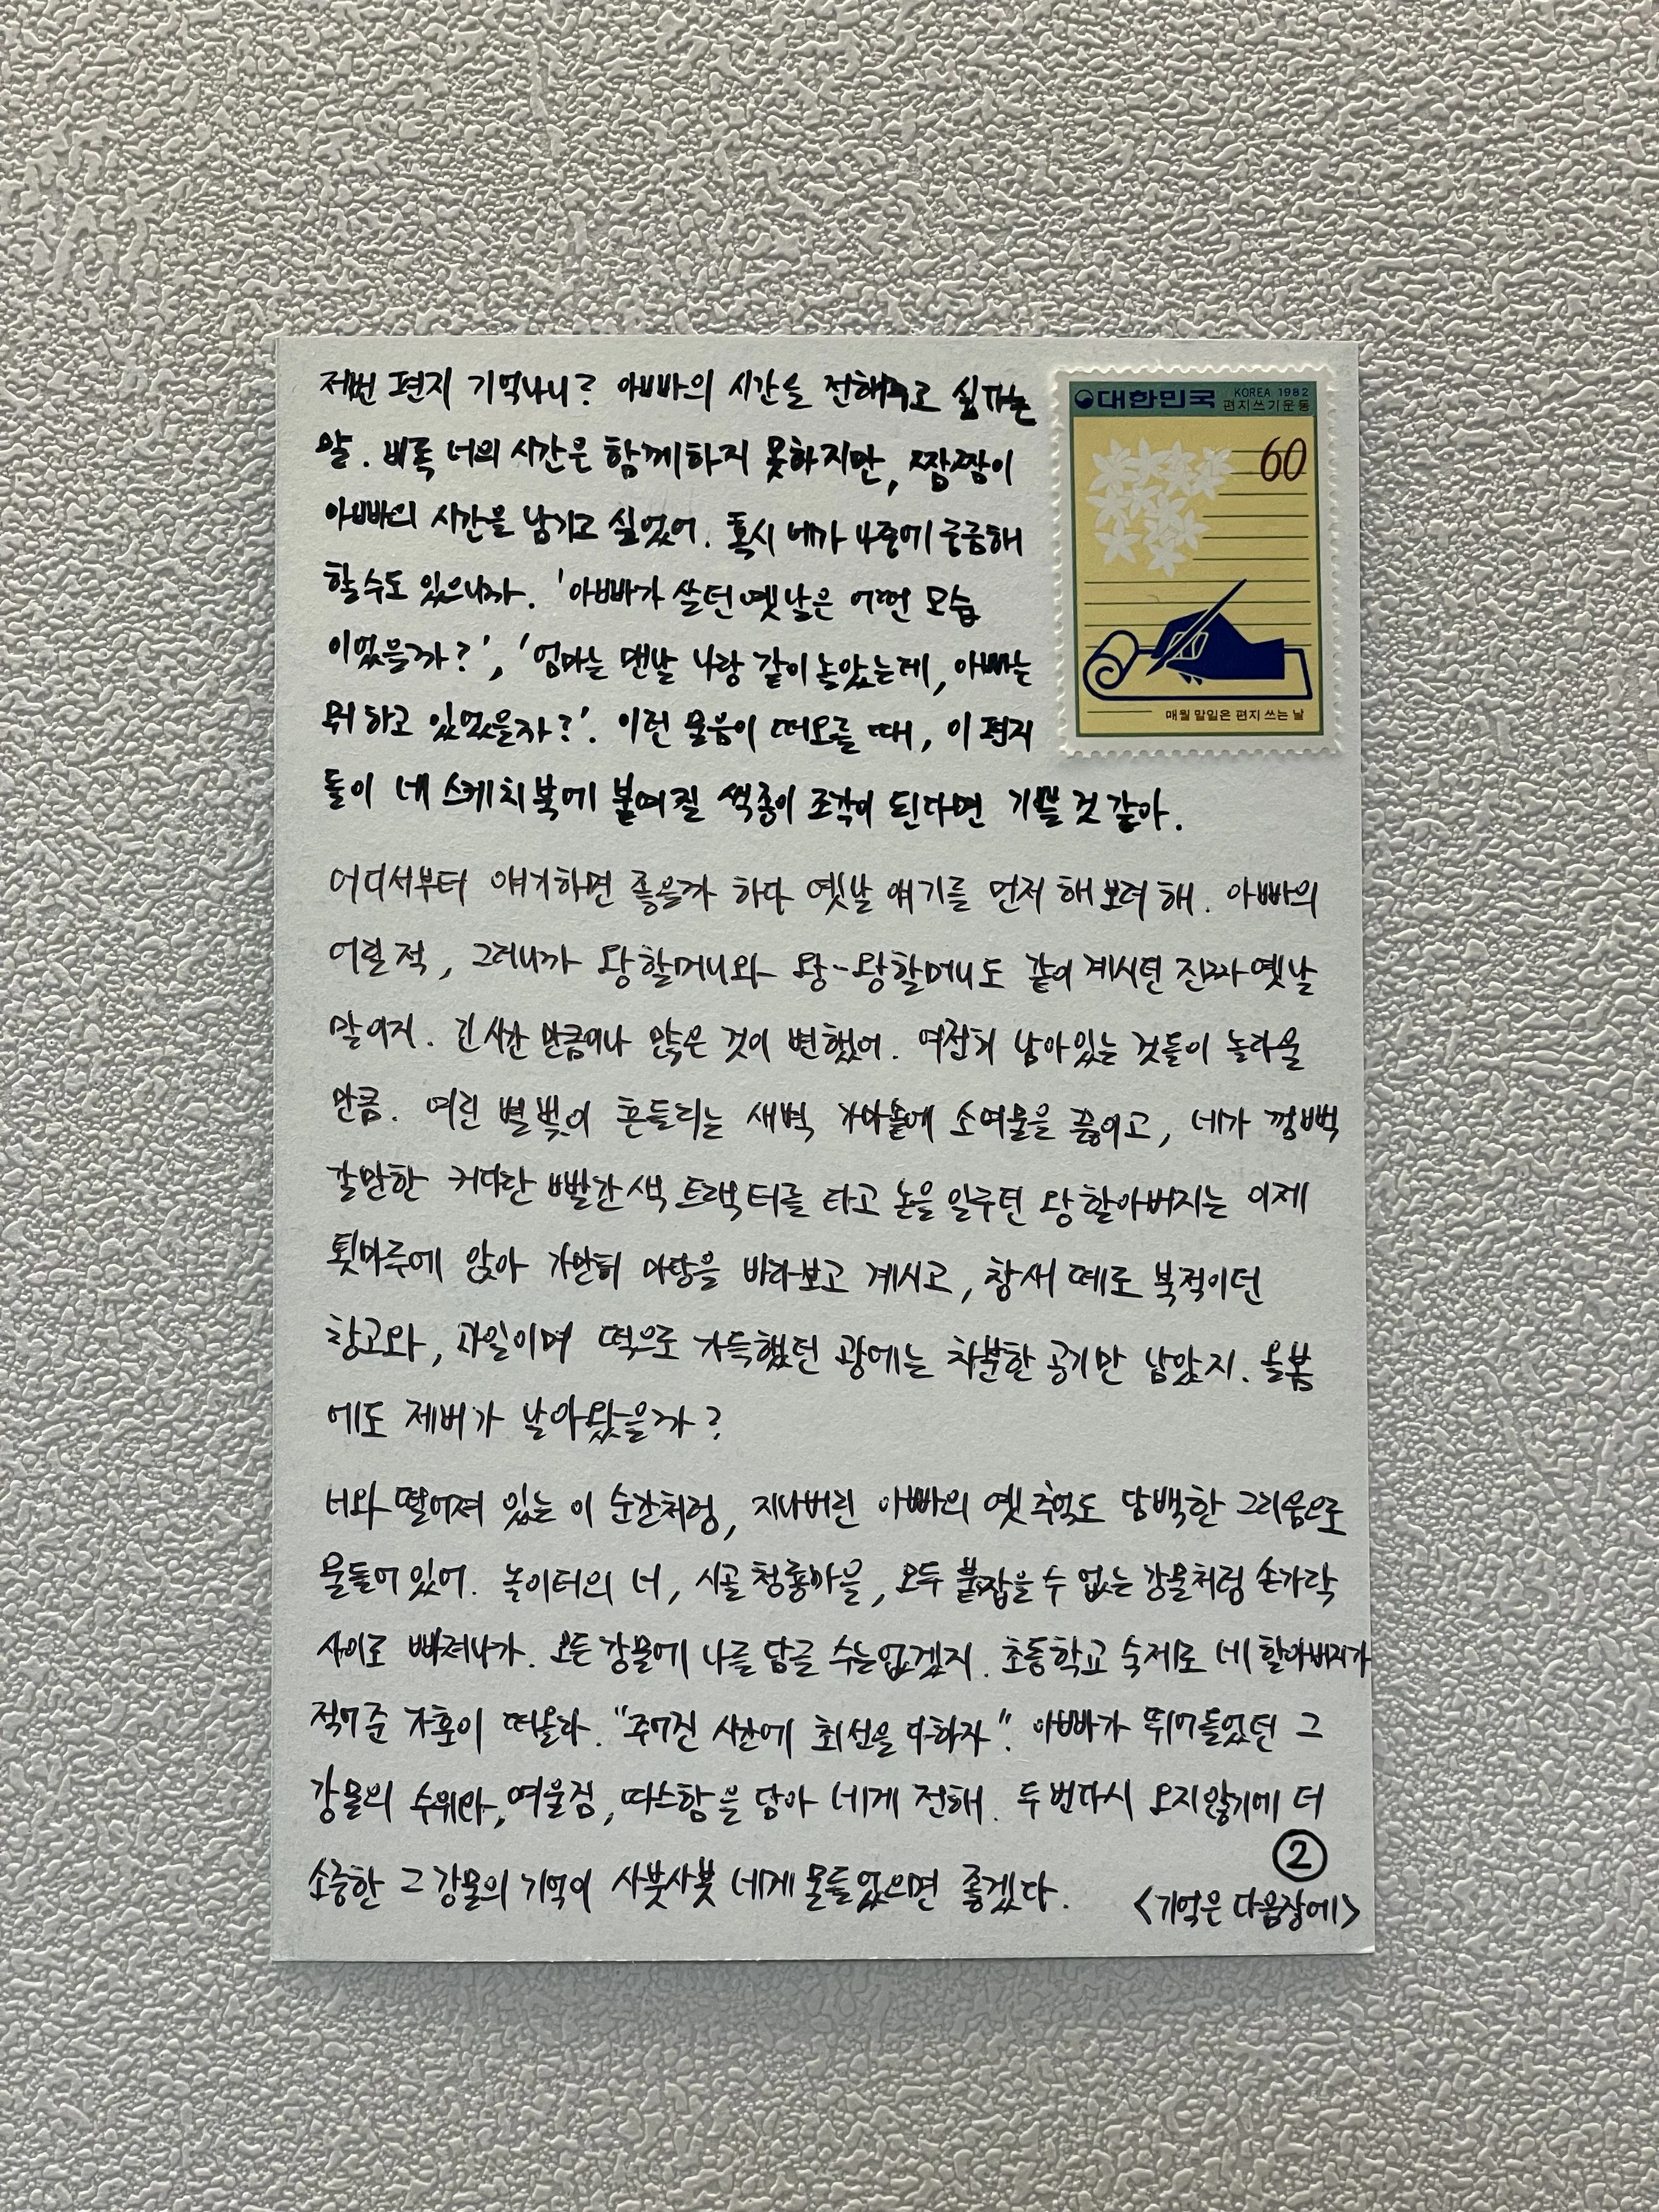 저번 편지 기억나니? 아빠의 시간을 전해주고 싶다는
말. 비록 너의 시간은 함께하지 못하지만, 짬짬이
아빠의 시간을 남기고 싶었어. 혹시 네가 나중에 궁금해
할 수도 있으니까. '아빠가 살던 옛날은 어떤 모습
이었을까?', '엄마는 맨날 나랑 같이 놀았는데, 아빠는
뭐 하고 있었을까?'. 이런 물음이 떠오를 때, 이 편지
들이 네 스케치북에 붙여질 색종이 조각이 된다면 기쁠 것 같아.
어디서부터 얘기하면 좋을까 하다 옛날 얘기를 먼저 해보려 해. 아빠의
어릴 적, 그러니까 왕할머니와 왕-왕할머니도 같이 계시던 진짜 옛날
말이지. 긴 시간 만큼이나 많은 것이 변했어. 여전히 남아있는 것들이 놀라울
만큼. 여린 별빛이 흔들리는 새벽 가마솥에 소여물을 끓이고, 네가 깜빡
갈만한 커다란 빨간색 트랙터를 타고 논을 일구던 왕할아버지는 이제
툇마루에 앉아 가만히 마당을 바라보고 계시고, 참새 떼로 북적이던
창고와, 과일이며 떡으로 가득했던 광에는 차분한 공기만 남았지. 올봄
에도 제비가 날아왔을까?
너와 떨어져 있는 이 순간처럼, 지나버린 아빠의 옛 추억도 담백한 그리움으로
물들어 있어. 놀이터의 너, 시골 청룡마을, 모두 붙잡을 수 없는 강물처럼 손가락
사이로 빠져나가. 모든 강물에 나를 담글 수는 없겠지. 초등학교 숙제로 네 할아버지가
적어준 가훈이 떠올라. "주어진 시간에 최선을 다하자". 아빠가 뛰어들었던 그
강물의 수위와, 여울짐, 따스함을 담아 네게 전해. 두 번 다시 오지 않기에 더
소중한 그 강물의 기억이 사붓사붓 네게 물들었으면 좋겠다.
②
<기억은 다음장에>
대한민국
KOREA 1982
편지쓰기운동
60
매월 말일은 편지 쓰는 날